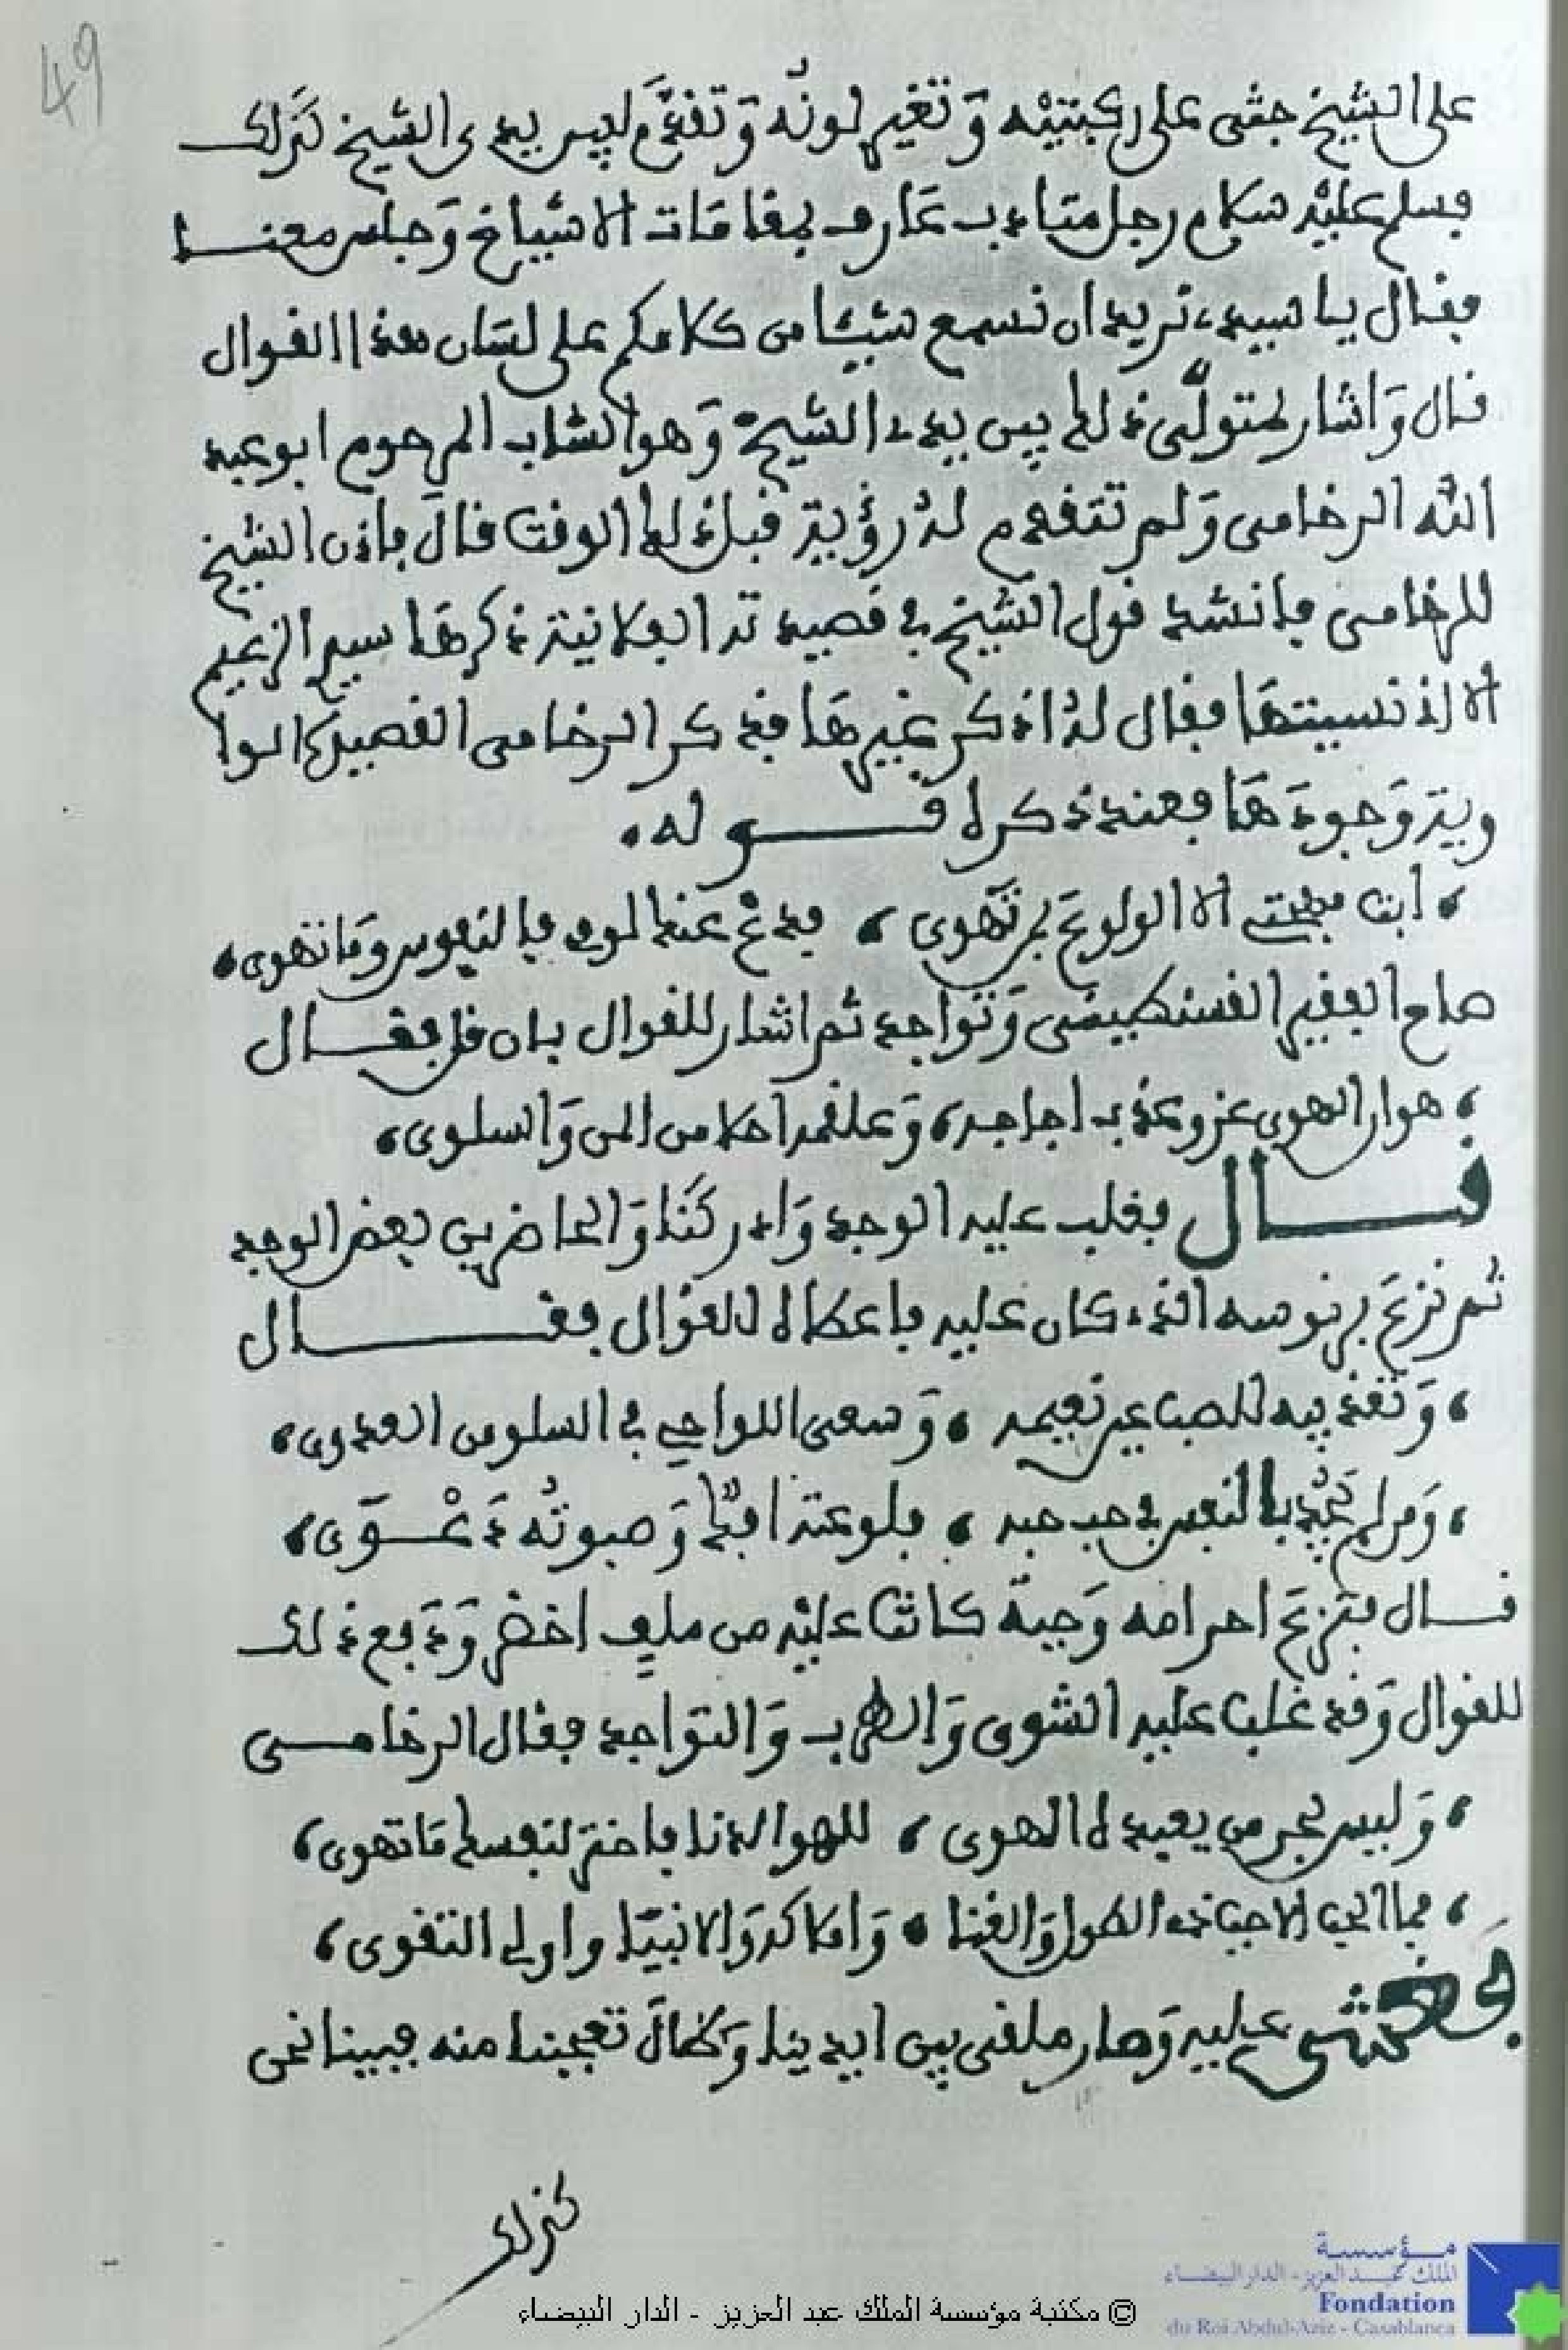 49
على الشيخ جثى على ركبتيه وتغير لونه وتقدم ليس بيدي الشيخ كذلك
فسلم عليه سلام رجل متأدب عارف بمقامات الاشياخ وجلس معنا
فقال يا سيدي نريد ان نسمع شيئا من كلامكم على لسان هذا القوال
قال واشار لمتولى ذلك بين يدي الشيخ وهو الشاب المرحوم ابو عبد
الله الرخامى ولم تتقدم له رؤية قبل ذلك الوقت قال فاذن الشيخ
للرخامى فانشد قول الشيخ في قصيدته الفلانية ذكرها سيد الزعيم
الا اني نسيتها فقال له اذكر غيرها فذكر الرخامى القصيدة الوا
وية وجودها فعند ذكره قوله
ابت مهجتي الا الولوع بمن تهوى ، فدع عنك لومي فالنفوس وما تهوى ،
صاح الفقير القسنطينى وتواجد ثم اشار للقوال بان قل فقال
هوان الهوى عز وعذب اجاجه ، وعلقمه احلا من المن والسلوى ،
قال فغلب عليه الوجد وادركنا والحاضرين بعض الوجد
ثم نزع برنوسه الذي كان عليه فاعطاه للقوال فقال
، وتعذيبه للصب عين نعيمه ، وسعي اللواحي في السلو من العدوى ،
، ومن لم يجد بالنفس في حب حبه ، فلوعته افك وصبوته دعوى ،
قال فنزع احرامه وجبة كانت عليه من ملف اخضر ودفع ذلك
للقوال وقد غلب عليه الشوق والطرب والتواجد فقال الرخامى
، وليس بحر من يعبده الهوى ، للهو الدنا فاختر لنفسك ما تهوى ،
، فما الحب الا حب ذي الطول والغنا ، واملاكه والانبيا واولي التقوى ،
فغشي عليه وصار ملقى بين ايدينا وطال تعجبنا منه فبينا نحن
كذلك
© مكتبة مؤسسة الملك عبد العزيز - الدار البيضاء
مؤسسة
الملك عبد العزيز - الدار البيضاء
Fondation
du Roi Abdul-Aziz - Casablanca